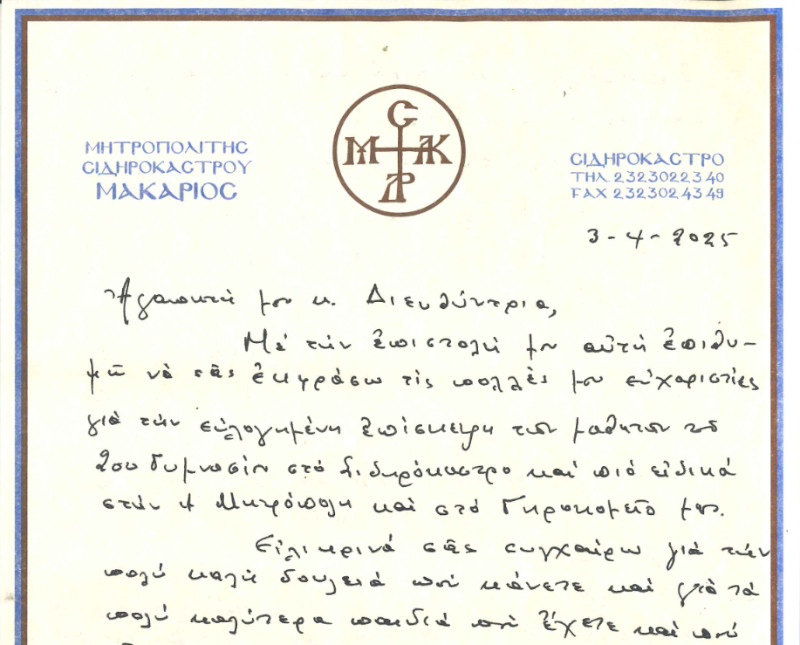 ΜΗΤΡΟΠΟΛΙΤΗΣ
ΣΙΔΗΡΟΚΑΣΤΡΟΥ
ΜΑΚΑΡΙΟΣ
ΣΙΔΗΡΟΚΑΣΤΡΟ
ΤΗΛ 23230 22340
FAX 23230 24349
3-4-2025
Ἀγαπητή μου κ. Διευθύντρια,
Μέ τήν ἐπιστολή μου αὐτή ἐπιθυ-
μῶ νά σᾶς ἐκφράσω τίς πολλές μου εὐχαριστίες
γιά τήν εὐλογημένη ἐπίσκεψη τῶν μαθητῶν τοῦ
2ου Γυμνασίου στό Σιδηρόκαστρο καί πιό εἰδικά
στήν Ι. Μητρόπολη καί στό Γηροκομεῖο μας.
Εἰλικρινά σᾶς συγχαίρω γιά τήν
πολύ καλή δουλειά πού κάνετε καί γιά τά
πολύ καλύτερα παιδιά πού ἔχετε καί πού